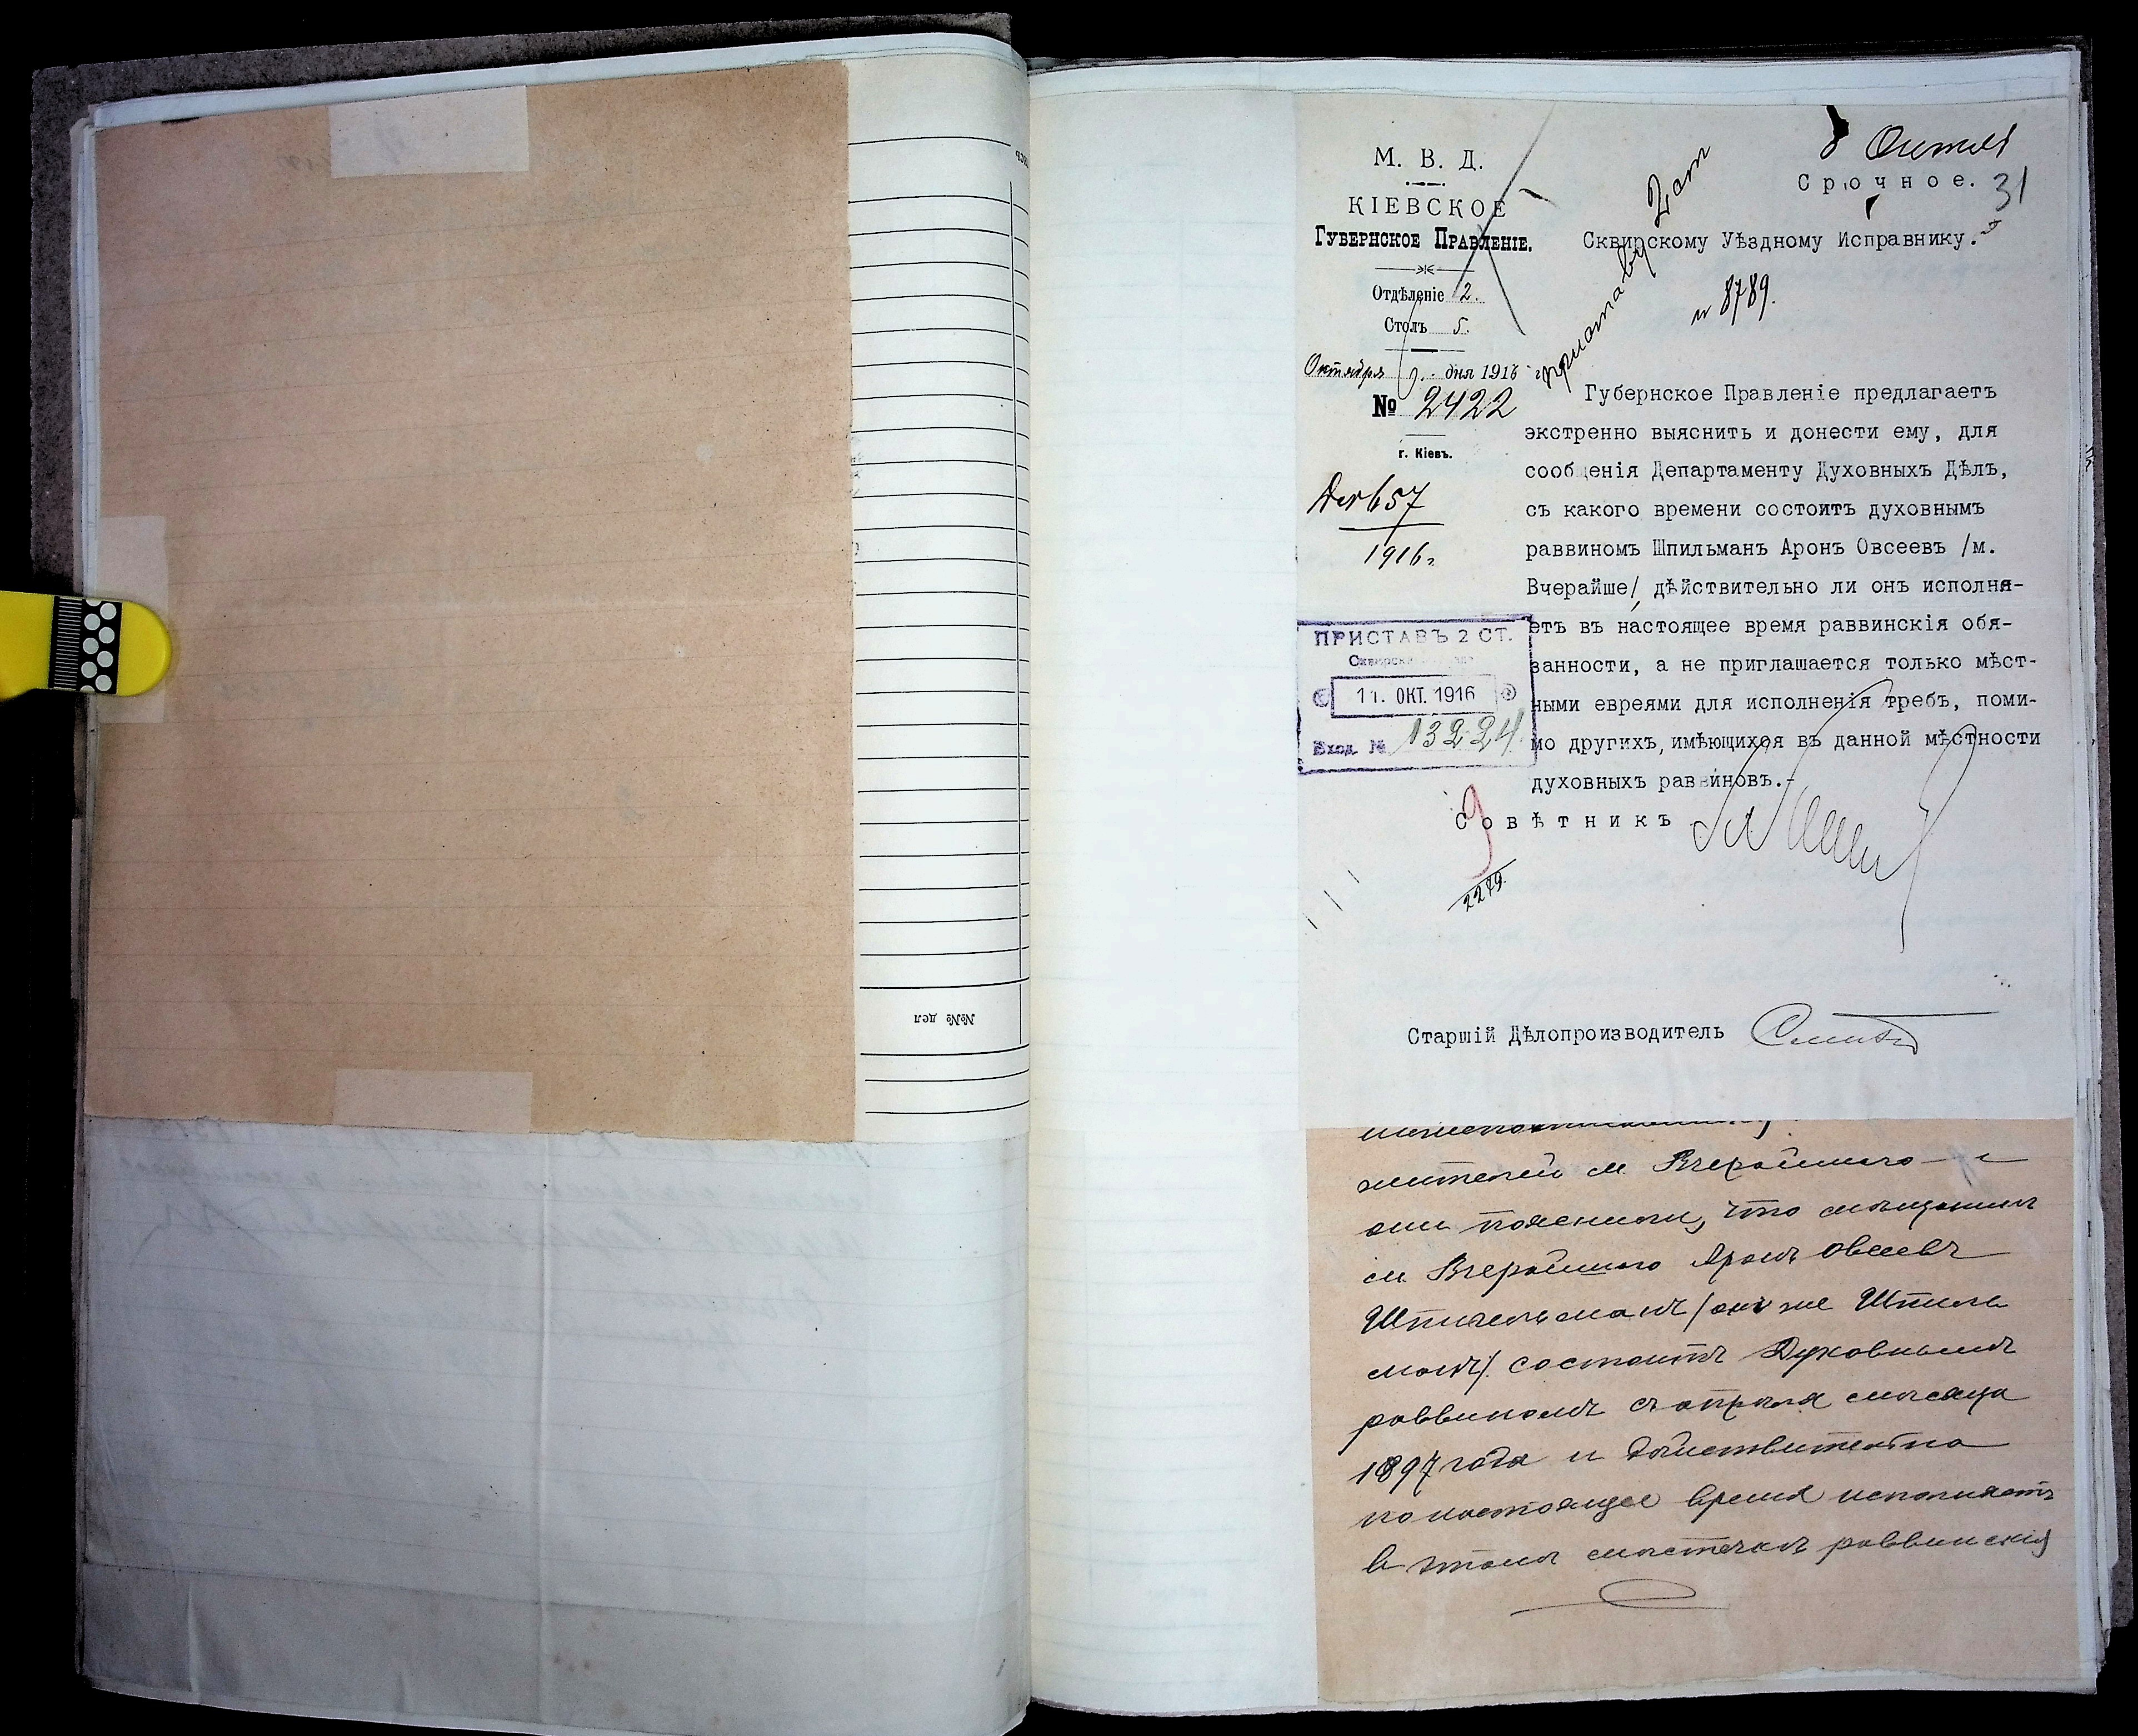 №№ дел
М. В. Д.
КІЕВСКОЕ
ГУБЕРНСКОЕ ПРАВЛЕНІЕ.
Отдѣленіе 2.
Столъ 5.
Октября дня 1916
№ 2422
г. Кіевъ.
657
1916 г.
8
Срочное.
31
Сквирскому Уѣздному Исправнику.
приставу 2 ст
8789.
Губернское Правленіе предлагаетъ
экстренно выяснить и донести ему, для
сообщенія Департаменту Духовныхъ Дѣлъ,
съ какого времени состоитъ духовнымъ
раввиномъ Шпильманъ Аронъ Овсеевъ /м.
Вчерайше/, дѣйствительно ли онъ исполня-
етъ въ настоящее время раввинскія обя-
занности, а не приглашается только мѣст-
ными евреями для исполненія требъ, поми-
мо другихъ, имѣющихся въ данной мѣстности
духовныхъ раввиновъ.-
ПРИСТАВЪ 2 СТ.
11. ОКТ. 1916
Вход. № 13224
Совѣтникъ
2279.
Старшій Дѣлопроизводитель
жителей м Вчерайшаго и
они пояснили, что мѣщанинъ
м. Вчерайшаго Аронъ Овсеевъ
Шпигельманъ /онъ же Шпиль
манъ/ состоитъ Духовнымъ
раввиномъ съ апрѣля мѣсяца
1897 года и дѣйствительно
по настоящее время исполняетъ
в этомъ мѣстечкѣ раввинскія